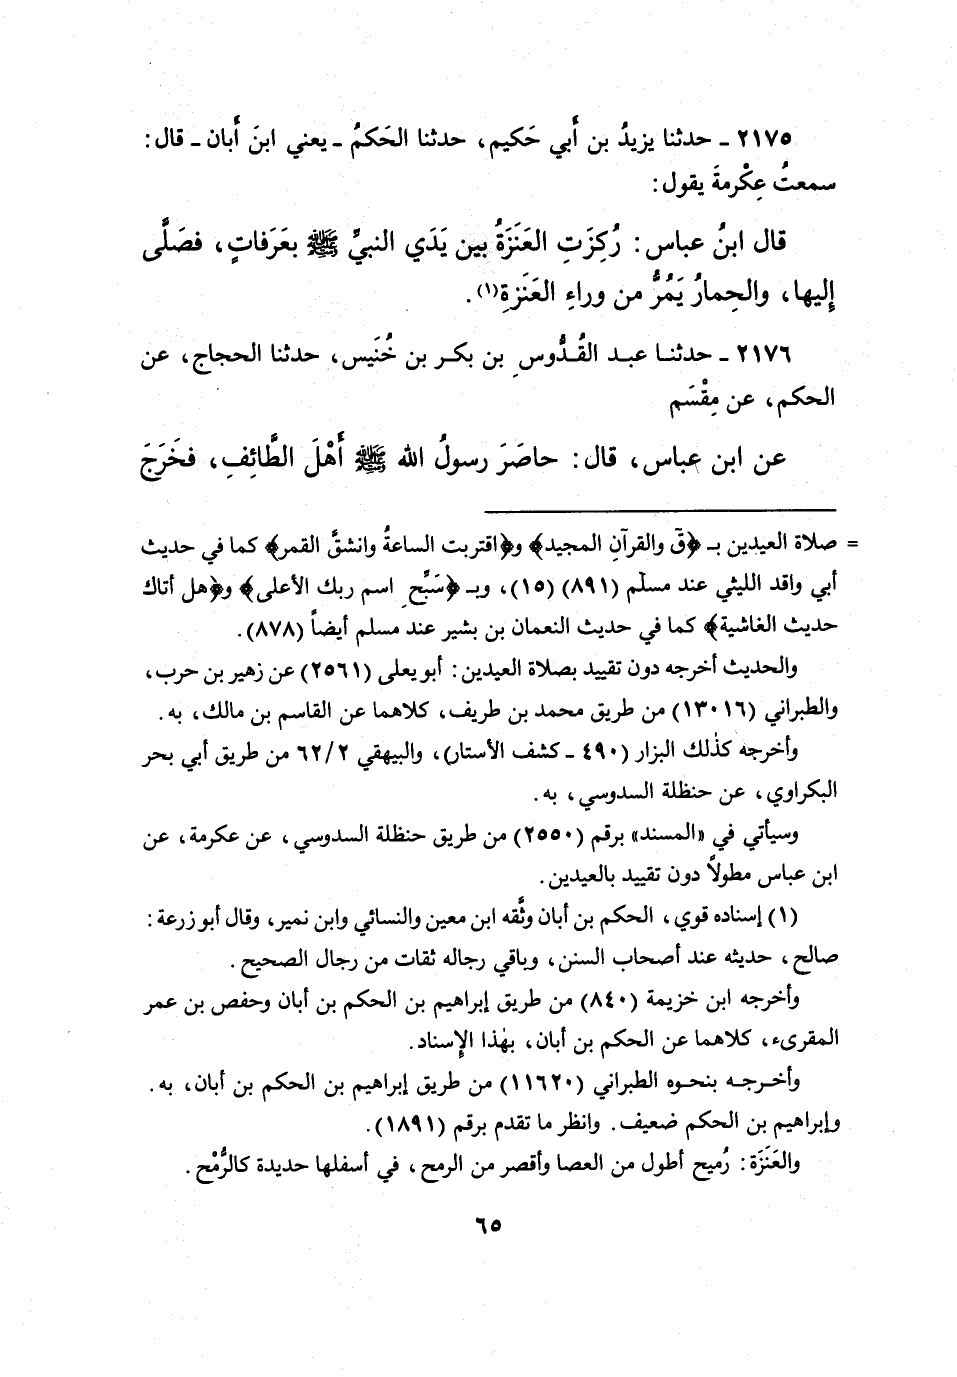 ٢١٧٥ ـ حدثنا يزيدُ بن أَبي حَكيم، حدثنا الحَكمُ ـ يعني ابنَ أَبان ـ قال:
سمعتُ عِكْرمةَ يقول:
قال ابنُ عباس: رُكِزَتِ العَنَزَةُ بين يَدَي النبيِّ ﷺ بعَرَفاتٍ، فصَلَّى
إِليها، والحِمارُ يَمُرُّ من وراءِ العَنَزةِ(١).
٢١٧٦ ـ حدثنا عبد القُدُّوسِ بن بكر بن خُنَيس، حدثنا الحجاج، عن
الحكم، عن مِقْسَم
عن ابن عباس، قال: حاصَرَ رسولُ الله ﷺ أَهْلَ الطَّائِفِ، فخَرَجَ
= صلاة العيدين بـ ﴿قٓ والقرآنِ المجيد﴾ و﴿اقتربت الساعةُ وانشقَّ القمر﴾ كما في حديث
أبي واقد الليثي عند مسلم (٨٩١) (١٥)، وبـ ﴿سَبِّحِ اسم ربك الأعلى﴾ و﴿هل أتاك
حديث الغاشية﴾ كما في حديث النعمان بن بشير عند مسلم أيضاً (٨٧٨).
والحديث أخرجه دون تقييد بصلاة العيدين: أبو يعلى (٢٥٦١) عن زهير بن حرب،
والطبراني (١٣٠١٦) من طريق محمد بن طريف، كلاهما عن القاسم بن مالك، به.
وأخرجه كذٰلك البزار (٤٩٠ ـ كشف الأستار)، والبيهقي ٦٢/٢ من طريق أبي بحر
البكراوي، عن حنظلة السدوسي، به.
وسيأتي في «المسند» برقم (٢٥٥٠) من طريق حنظلة السدوسي، عن عكرمة، عن
ابن عباس مطولاً دون تقييد بالعيدين.
(١) إسناده قوي، الحكم بن أبان وثَّقه ابن معين والنسائي وابن نمير، وقال أبو زرعة:
صالح، حديثه عند أصحاب السنن، وباقي رجاله ثقات من رجال الصحيح.
وأخرجه ابن خزيمة (٨٤٠) من طريق إبراهيم بن الحكم بن أبان وحفص بن عمر
المقرىء، كلاهما عن الحكم بن أبان، بهٰذا الإِسناد.
وأخرجه بنحوه الطبراني (١١٦٢٠) من طريق إبراهيم بن الحكم بن أبان، به.
وإبراهيم بن الحكم ضعيف. وانظر ما تقدم برقم (١٨٩١).
والعَنَزَة: رُميح أطول من العصا وأقصر من الرمح، في أسفلها حديدة كالرُّمْح.
٦٥